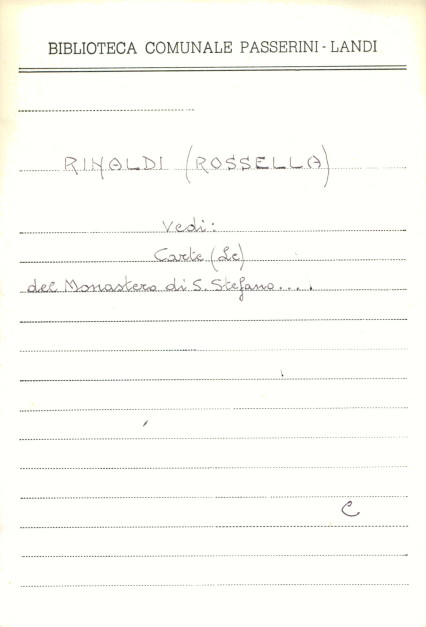 BIBLIOTECA COMUNALE PASSERINI - LANDI
RINALDI (ROSSELLA)
Vedi:
Carte (Le)
del Monastero di S. Stefano....
C